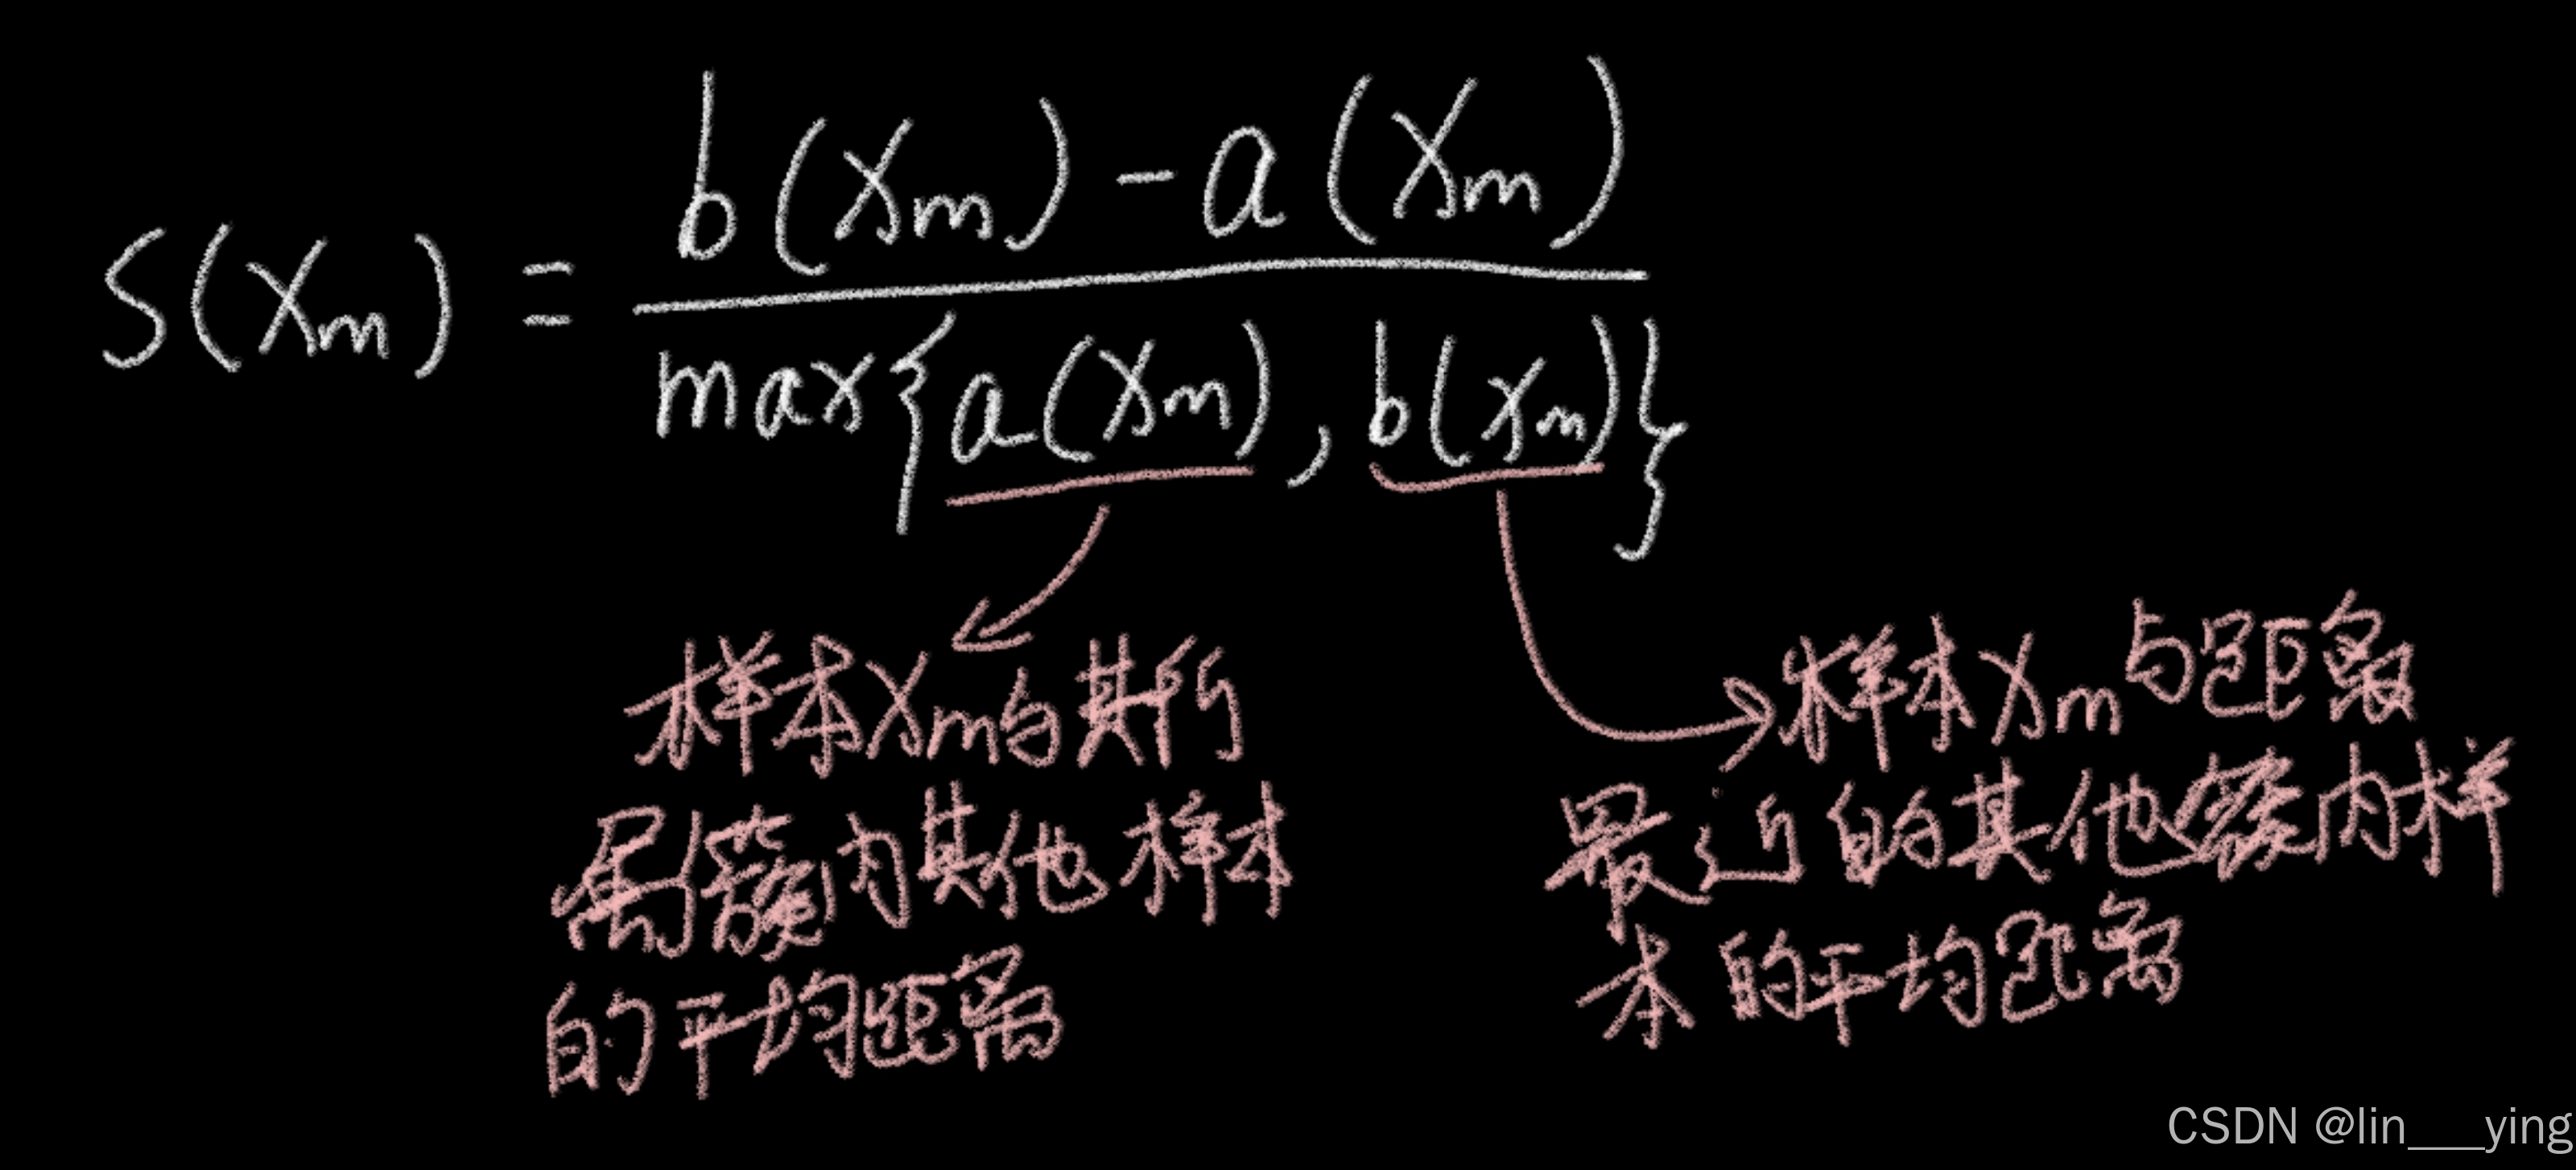 S(Xm) = b(Xm) - a(Xm) / max{a(Xm), b(Xm)}
样本Xm与其所
属簇内其他样本
的平均距离
样本Xm与距离
最近的其他簇内样
本的平均距离
CSDN @lin___ying